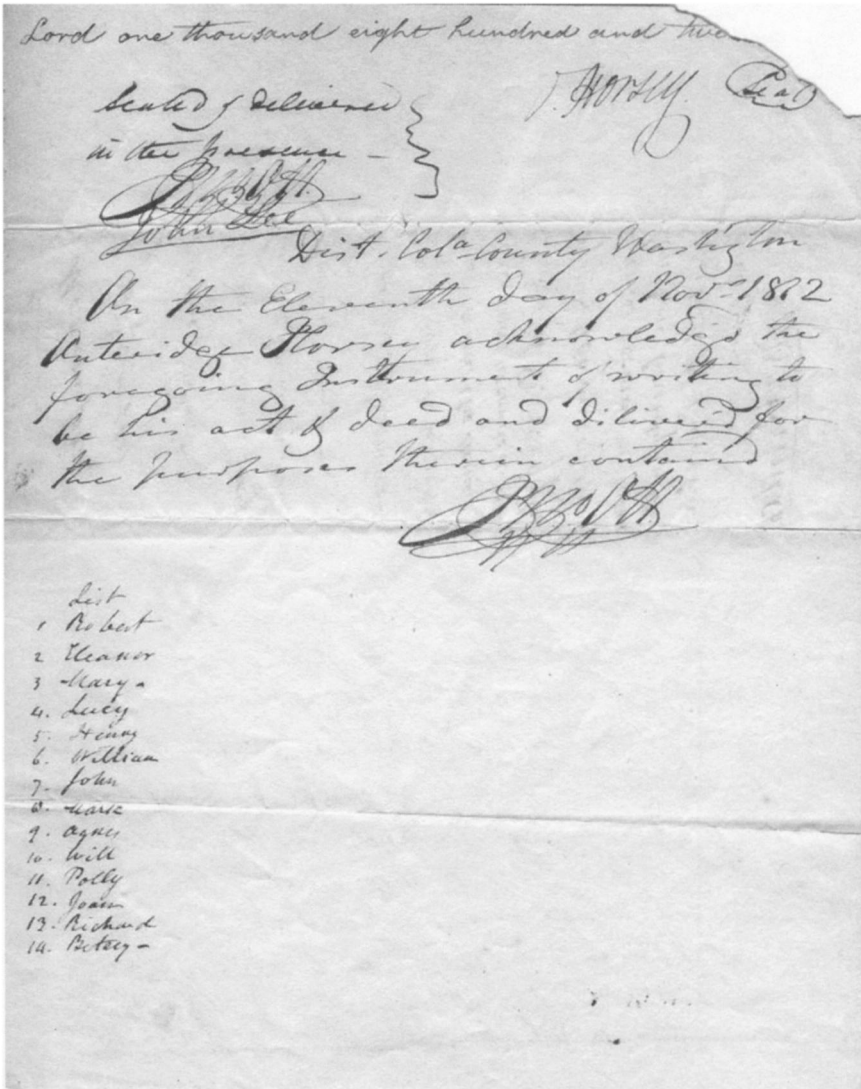 Lord one thousand eight hundred and
Horsey Seal
Sealed & delivered
in the presence –
John Lee
Dist. Cola County Washington
On the Eleventh day of Novr 1812
Outeridge Horsey acknowledged the
foregoing Instrument of writing to
be his act & deed and delivered for
the purposes therein contained
List
1 Robert
2 Eleanor
3 Mary –
4. Lucy
5. Henny
6. William
7. John
8. Mark
9. Agnes
10. Will
11. Polly
12. Joan
13. Richard
14. Betsey –